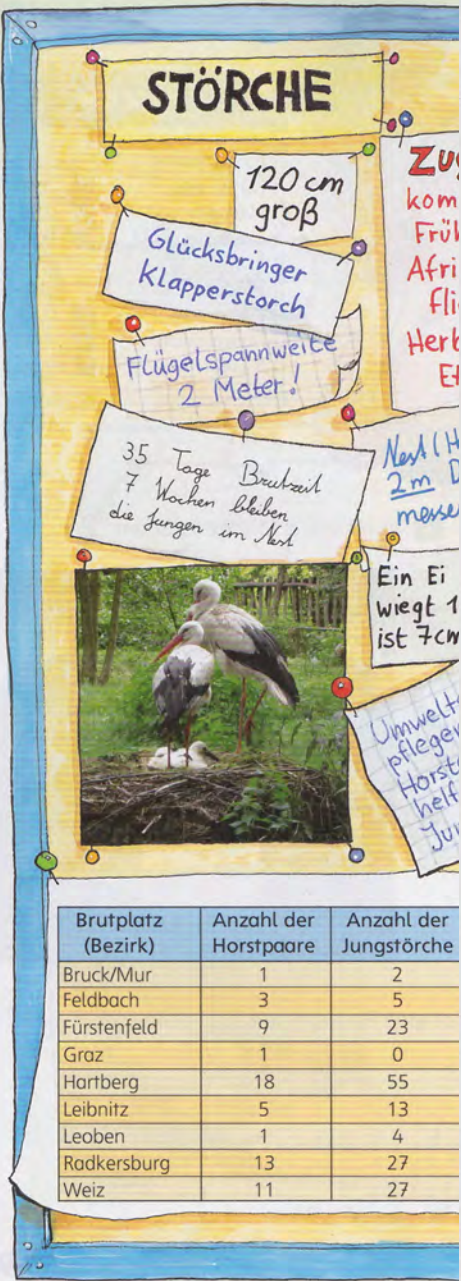 STÖRCHE
120 cm
groß
Glücksbringer
Klapperstorch
Flügelspannweite
2 Meter!
35 Tage Brutzeit
7 Wochen bleiben
die Jungen im Nest
Zug
kom
Früh
Afri
flie
Herb
Nest (H
2m D
messe
Ein Ei
wiegt 1
ist 7cm
Umwelt
pflegen
Horst
helf
Jun
Brutplatz (Bezirk) Anzahl der Horstpaare Anzahl der Jungstörche
Bruck/Mur 1 2
Feldbach 3 5
Fürstenfeld 9 23
Graz 1 0
Hartberg 18 55
Leibnitz 5 13
Leoben 1 4
Radkersburg 13 27
Weiz 11 27